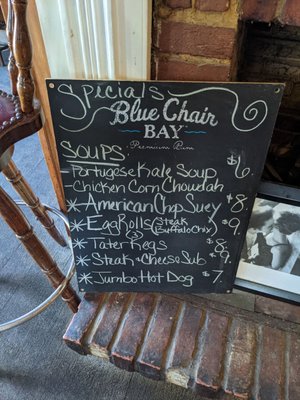 Specials
Blue Chair
BAY
Premium Rum
SOUPS:
-Portugese Kale Soup $6
-Chicken Corn Chowdah
*American Chop Suey $8
*Egg Rolls (Steak Buffalo Chix) $9.
(3)
*Tater Kegs $8
*Steak & Cheese Sub $9.
*Jumbo Hot Dog $7.